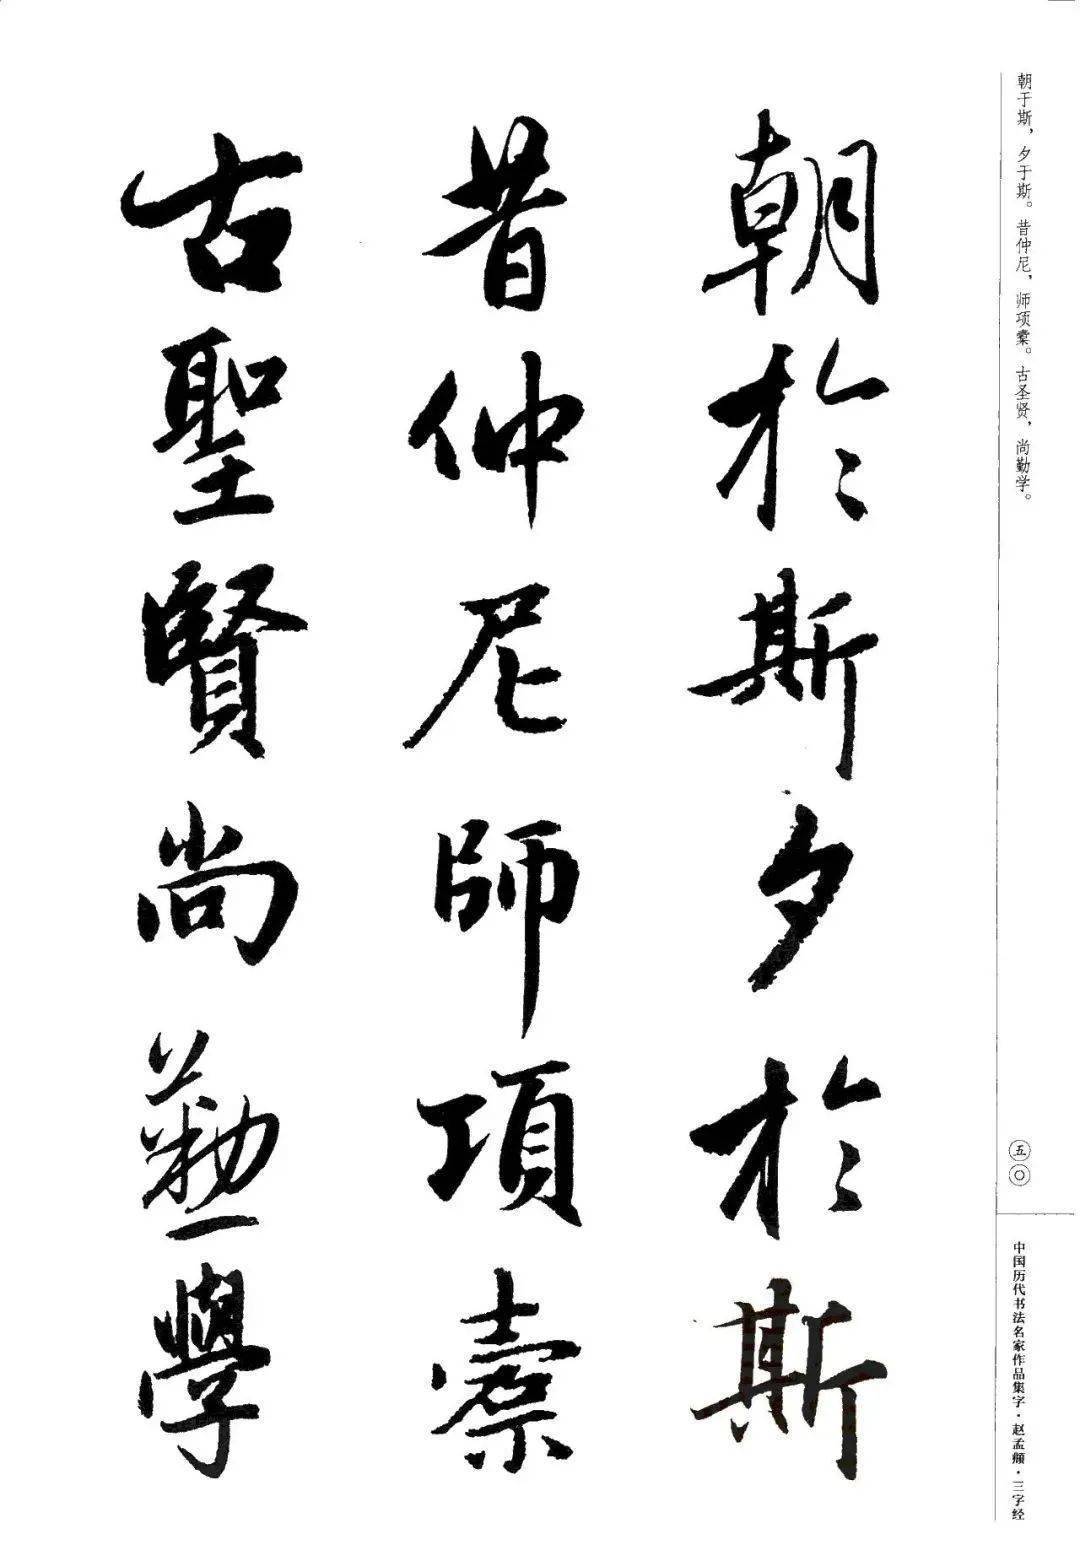 朝于斯，夕于斯。昔仲尼，师项橐。古圣贤，尚勤学。
五〇
中国历代书法名家作品集字·赵孟頫·三字经
朝於斯夕於斯
昔仲尼師項橐
古聖賢尚勤學